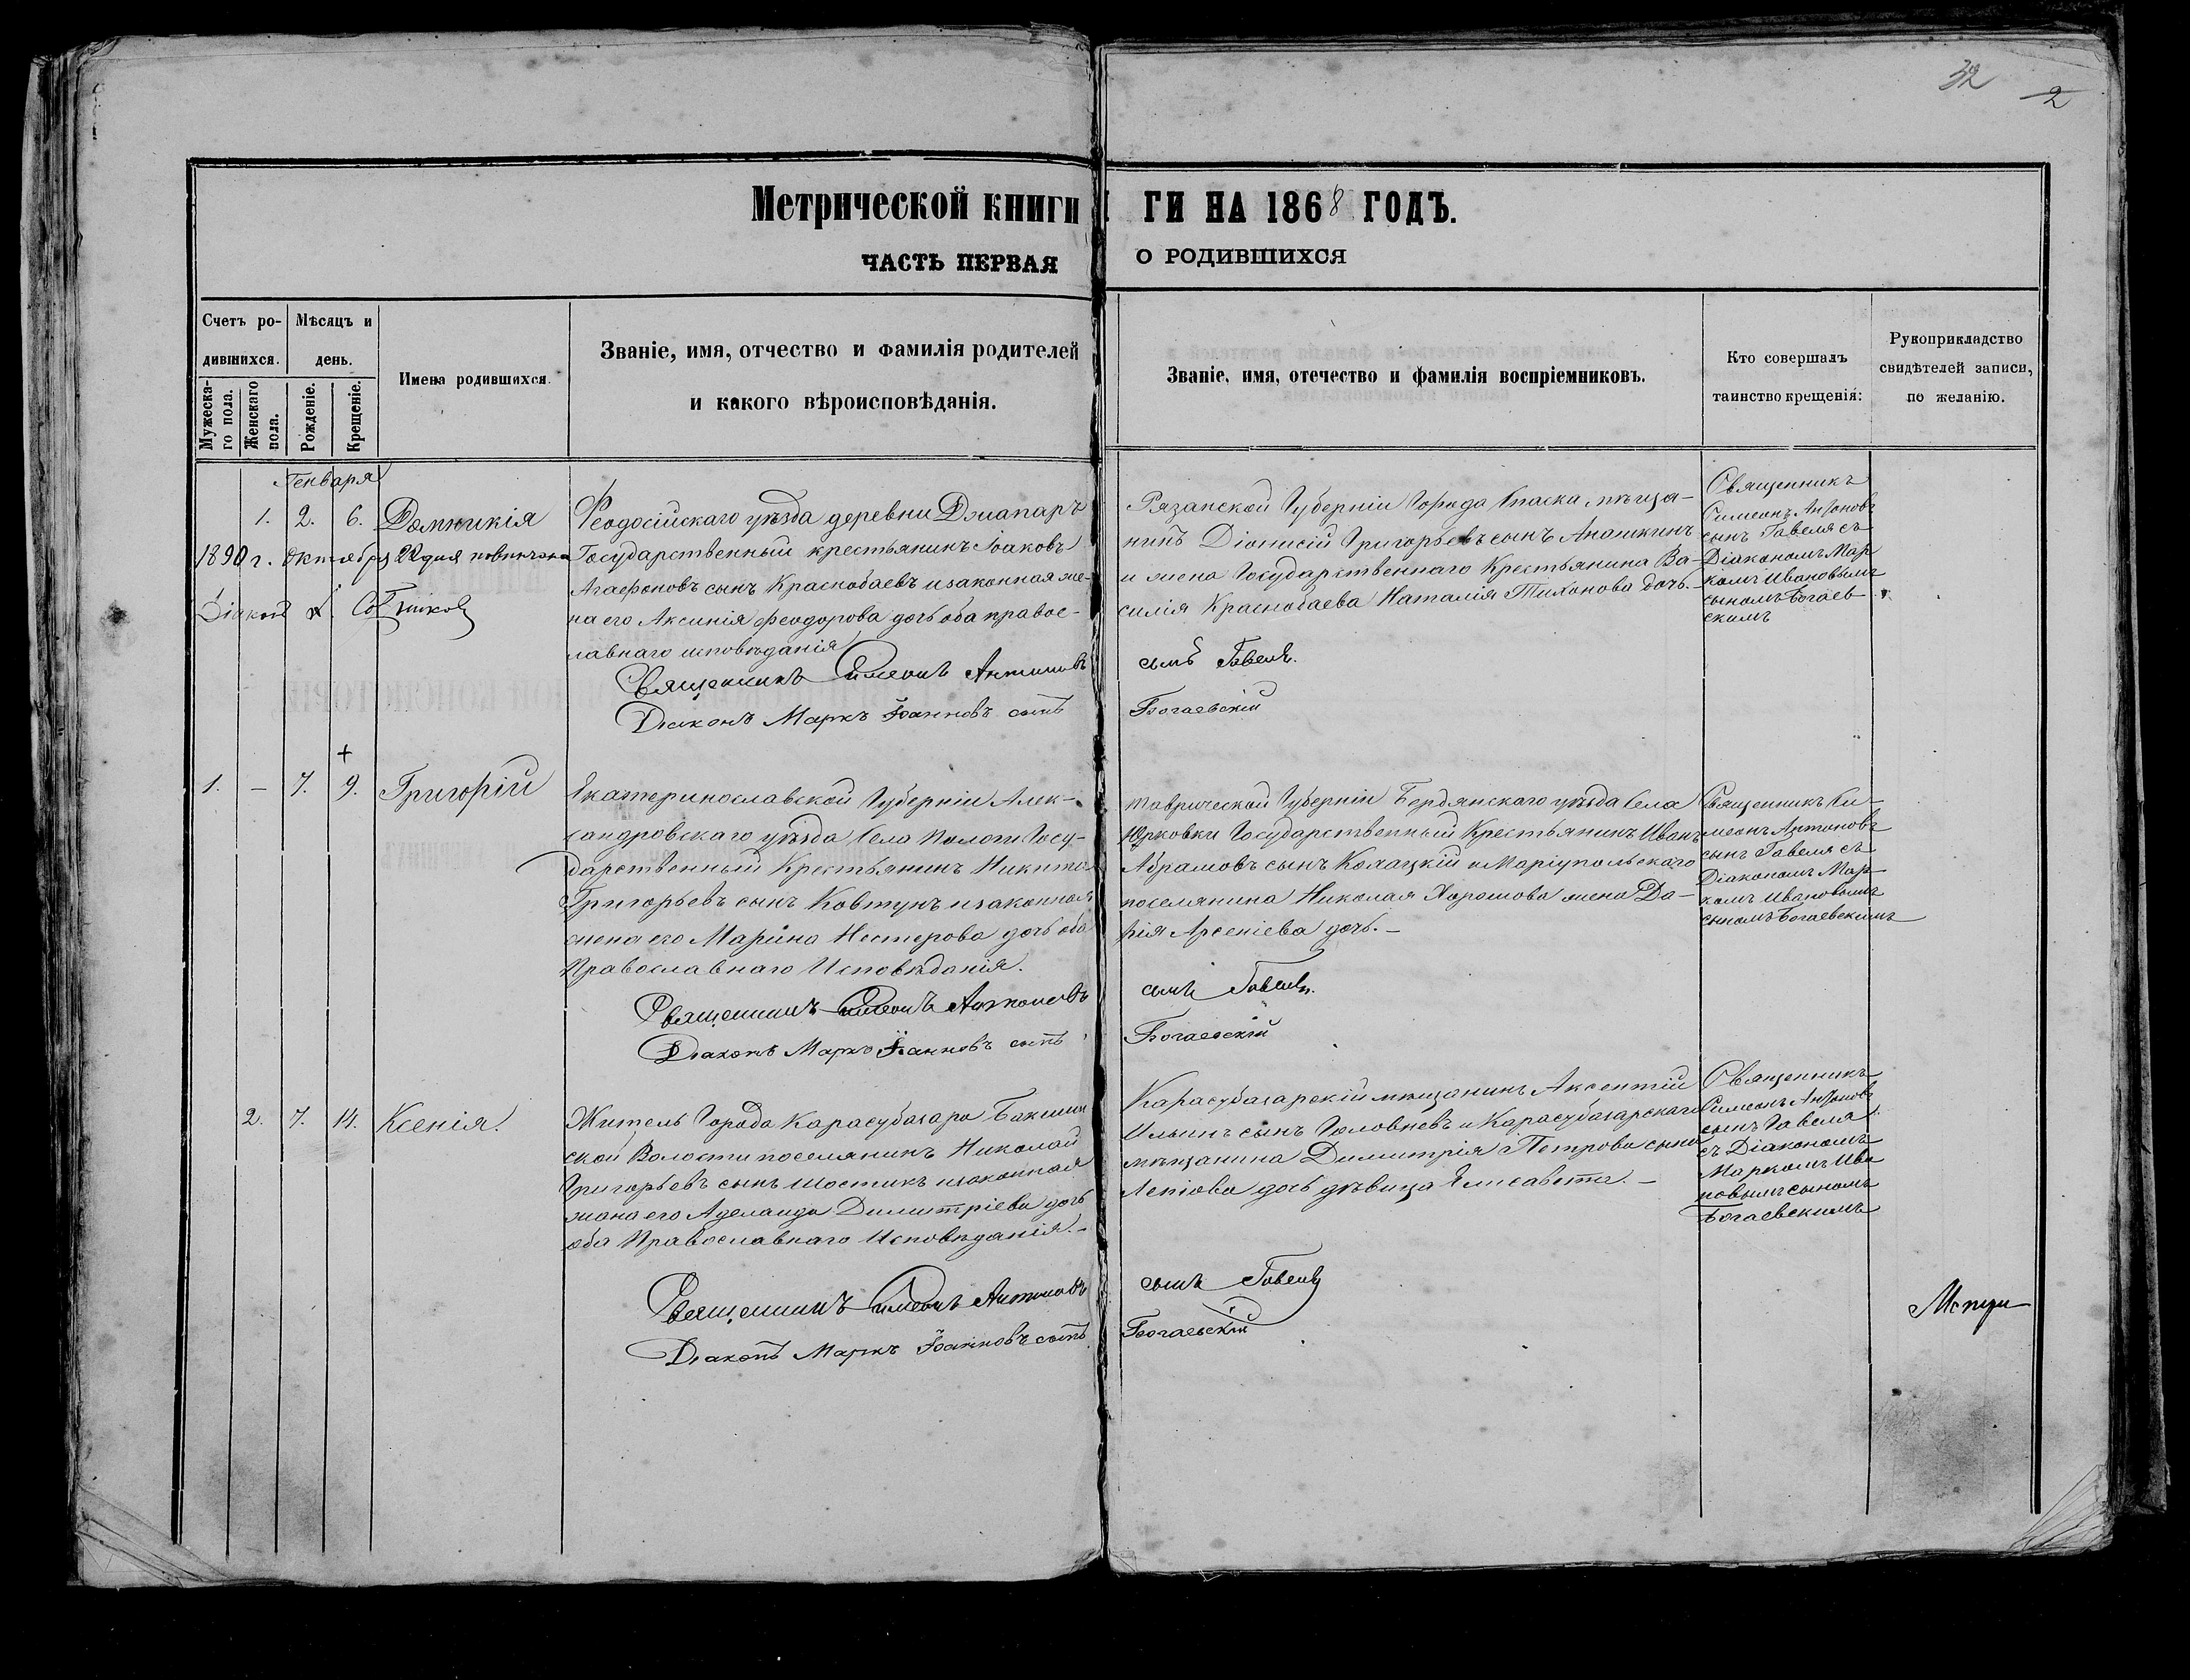 32 2
Метрической книги ги на 1868 годъ.
часть первая о родившихся
Счетъ родившихся.
Мужескаго пола.
Женскаго пола.
Мѣсяцъ и день.
Рожденіе.
Крещеніе.
Имена родившихся.
Званіе, имя, отчество и фамилія родителей
и какого вѣроисповѣданія.
Званіе, имя, отечество и фамилія воспріемниковъ.
Кто совершалъ
таинство крещенія:
Рукоприкладство
свидѣтелей записи,
по желанію.
Генваря
1. 2. 6. Домникія
1890 г. Октября 22 дня повенчана
Діаконъ Сотниковъ
Феодосійскаго уѣзда деревни Джапаръ
Государственный крестьянинъ Іоаковъ
Агафоновъ сынъ Краснобаевъ и законная же-
на его Аксинія Феодорова дочь оба правос-
лавнаго исповѣданія
Священникъ Симеонъ Антоновъ
сынъ Гавеля.
Діаконъ Маркъ Іоанновъ сынъ
Богаевскій
Рязанской Губерніи Города Спаска, мѣща-
нинъ Діонисій Григорьевъ сынъ Анашкинъ
и жена Государственнаго Крестьянина Ва-
силія Краснобаева Наталія Тихонова дочь.
Священникъ
Симеонъ Антоновъ
сынъ Гавеля съ
Діакономъ Мар
комъ Ивановымъ
сыномъ Богаев-
скимъ
+
1. – 7. 9. Григорій
Екатеринославской Губерніи Алек-
сандровскаго уѣзда Села Пологи Госу-
дарственный Крестьянинъ Никита
Григорьевъ сынъ Ковтунъ и законная
жена его Марина Нестерова дочь оба
Православнаго Исповѣданія.
Священникъ Симеонъ Антоновъ
сынъ Гавеля.
Діаконъ Маркъ Іоанновъ сынъ
Богаевскій
Таврической Губерніи Бердянскаго уѣзда Села
Юрковки Государственный Крестьянинъ Иванъ
Абрамовъ сынъ Кохацкій и Маріупольскаго
поселянина Николая Хорошова жена Да-
рія Арсеніева дочь. –
Священникъ Си-
меонъ Антоновъ
сынъ Гавеля съ
Діакономъ Мар-
комъ Ивановымъ
сыномъ Богаевскимъ
2. 7. 14. Ксенія.
Житель Города Карасубазара Бакшин
ской Волости поселянинъ Николай
Григорьевъ сынъ Шостикъ и законная
жана его Аделаида Димитріева дочь
оба Православнаго Исповѣданія. –
Священникъ Симеонъ Антоновъ
сынъ Гавеля
Діаконъ Маркъ Іоанновъ сынъ
Богаевскій
Карасубазарскій мещанинъ Аксентій
Ильинъ сынъ Головневъ и Карасубазарскаго
мѣщанина Димитрія Петрова сына
дочь дѣвица Елисавета. –
Священникъ
Симеонъ Антоновъ
сынъ Гавеля
съ Діакономъ
Маркомъ Ива
новымъ сыномъ
Богаевскимъ